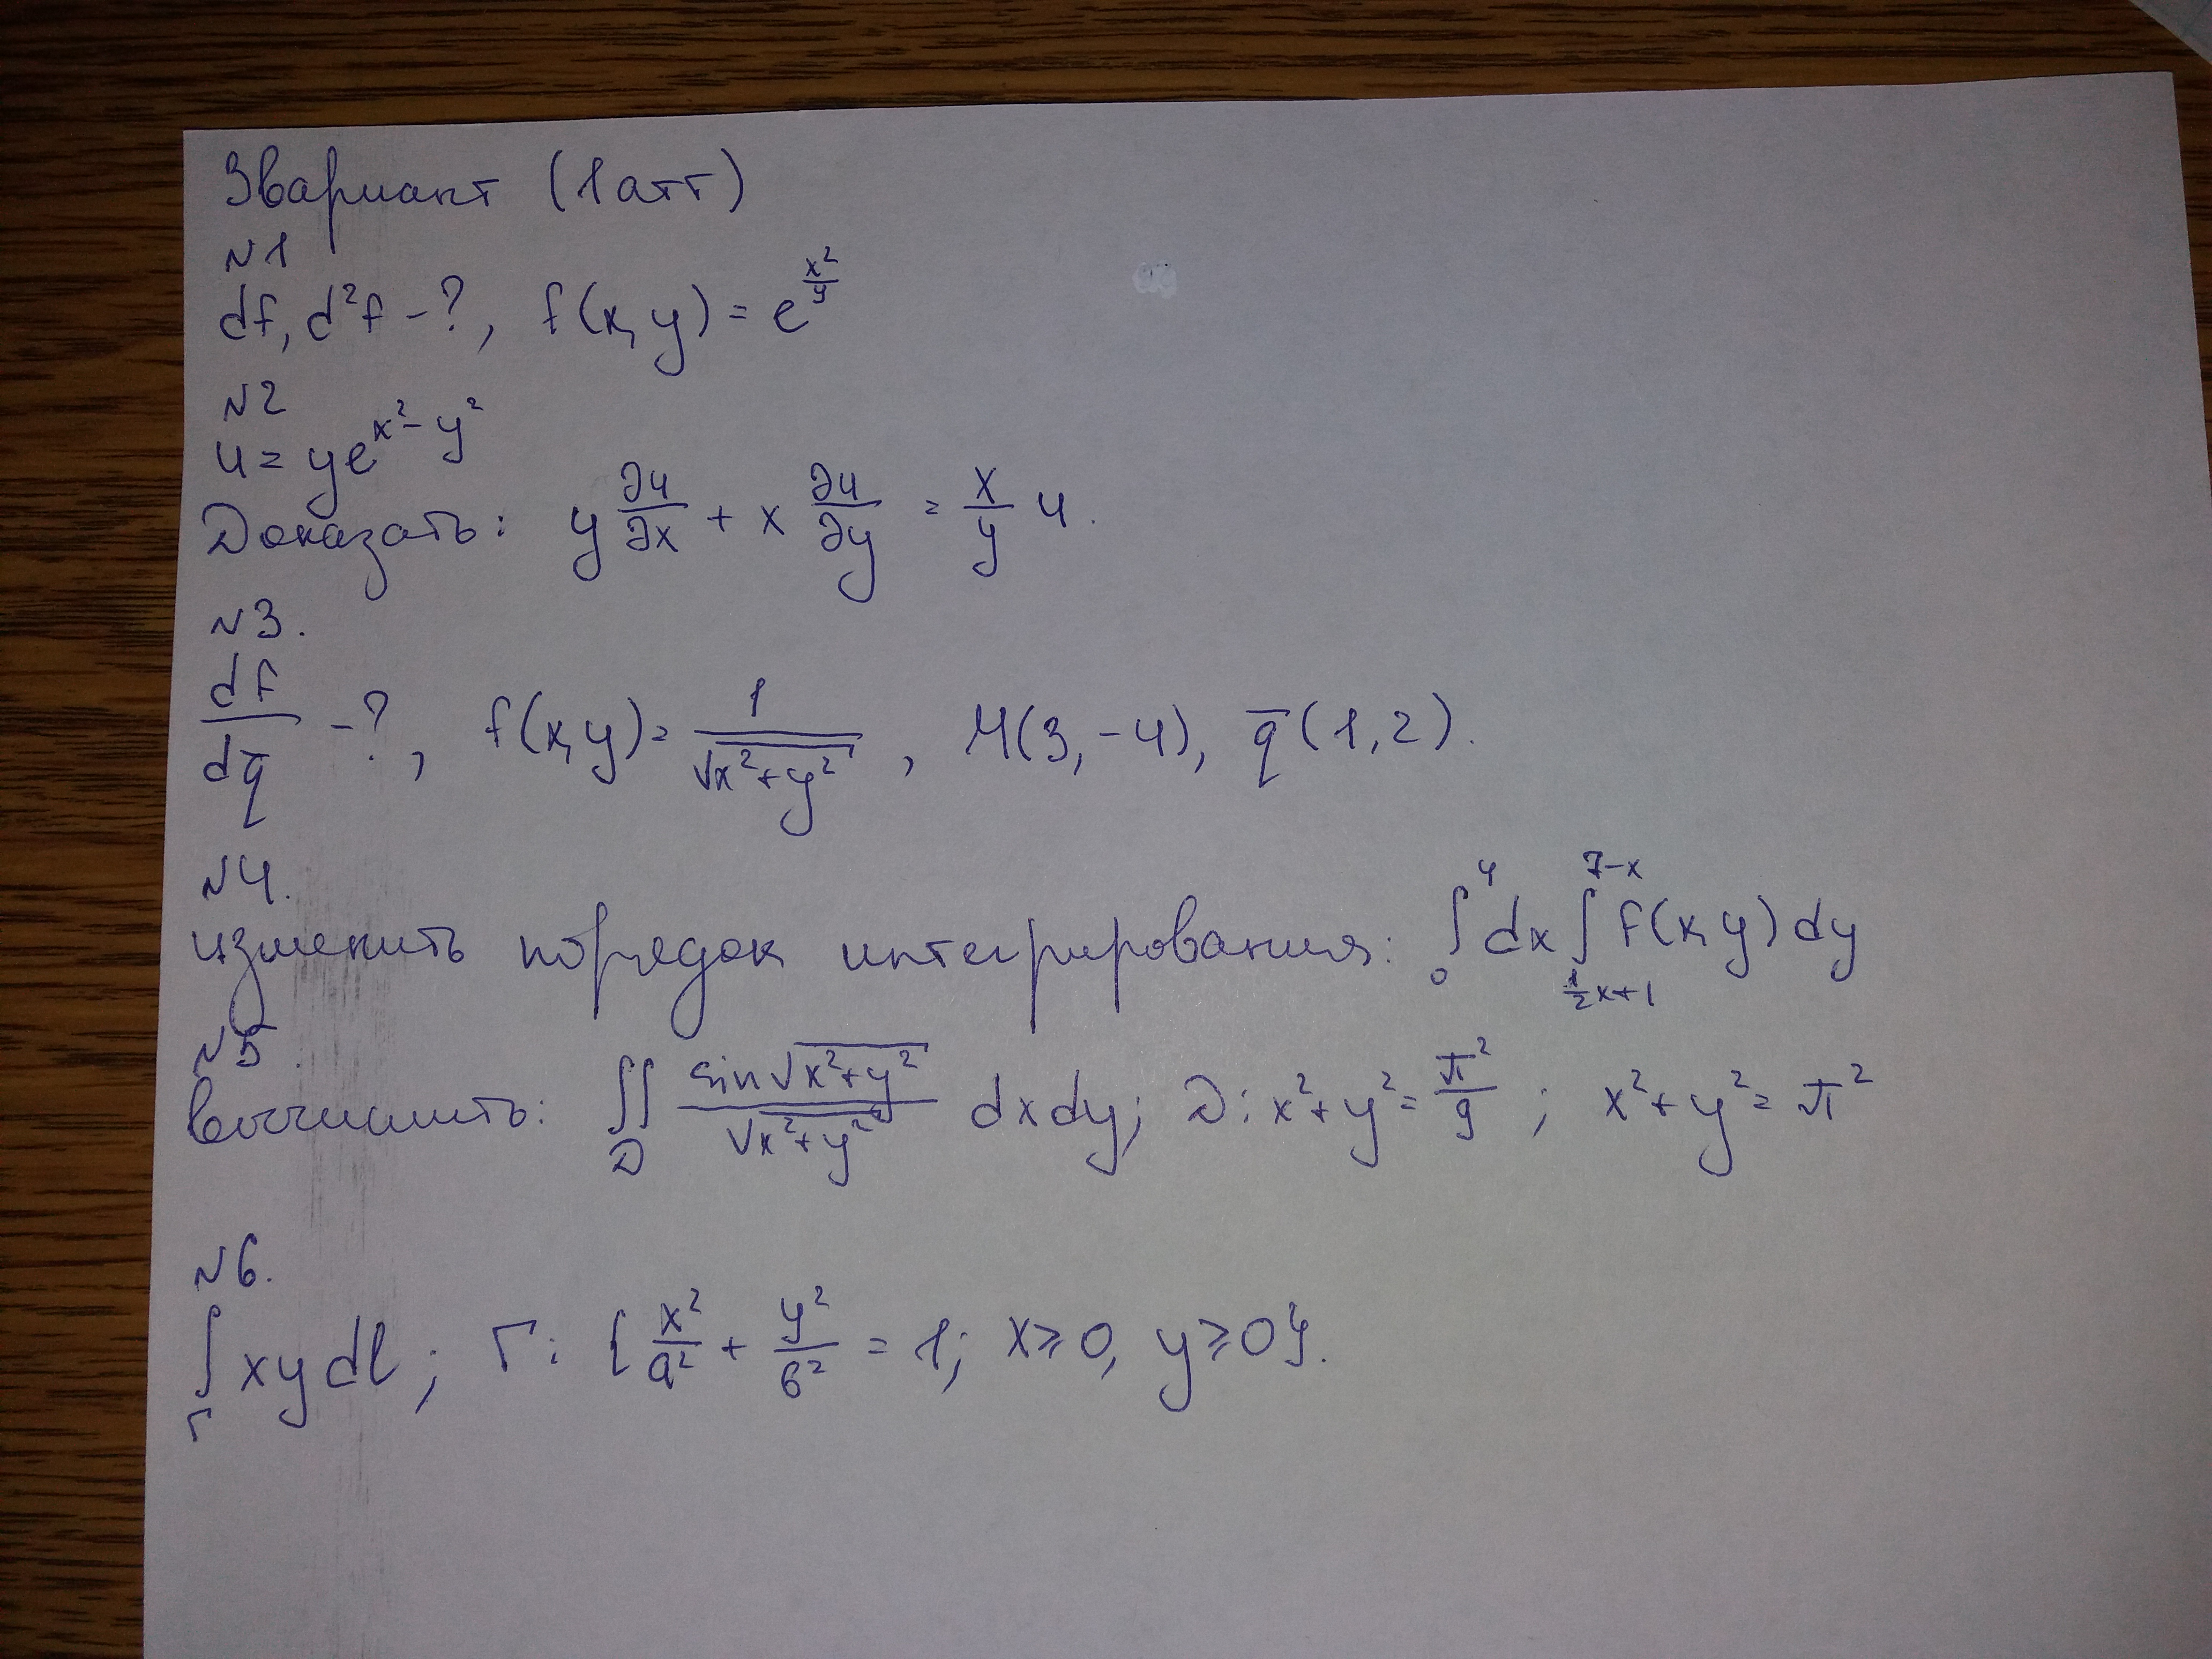 3 вариант (1 атт)
№1
df, d²f - ?, f(x, y) = e^(x²/y)
№2
u = ye^(x² - y²)
Доказать: y ∂u/∂x + x ∂u/∂y = x/y u.
№3.
df/dq̄ - ?, f(x, y) = 1/√(x² + y²), M(3, -4), q̄(1, 2).
№4.
изменить порядок интегрирования: ∫₀⁴ dx ∫_(½x+1)^(7-x) f(x, y) dy
№5.
Вычислить: ∬_D sin√(x² + y²)/√(x² + y²) dxdy; D: x² + y² = π²/9; x² + y² = π²
№6.
∫_Γ xy dl; Γ: {x²/a² + y²/б² = 1; x ≥ 0, y ≥ 0}.